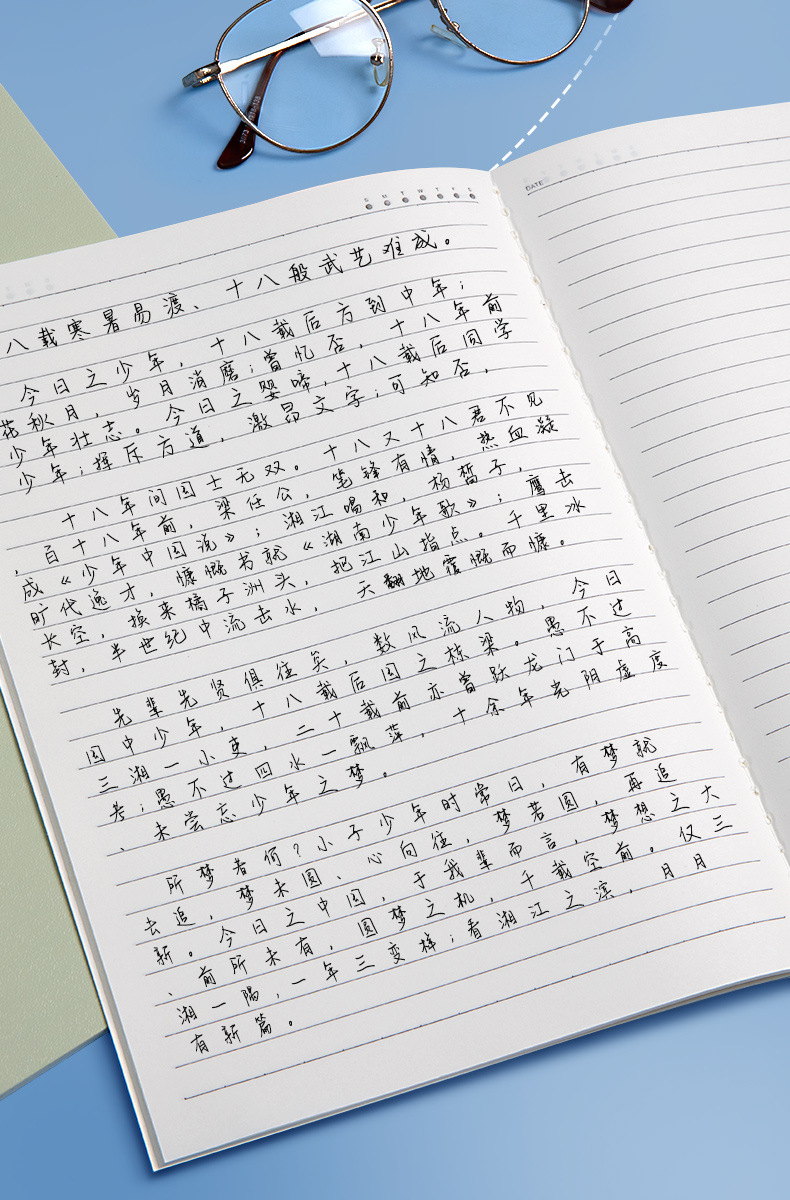 S M T W T F S
DATE
八载寒暑易渡、十八般武艺难成。
今日之少年，十八载后方到中年；
花秋月，岁月消磨；曾忆否，十八年前
少年壮志。今日之婴啼，十八载后同学
少年；挥斥方遒，激昂文字；可知否，
十八年间国士无双。十八又十八君不见
，百十八年前，梁任公，笔锋有情，热血凝
成《少年中国说》；湘江唱和，杨皙子，
旷代逸才，慷慨书就《湖南少年歌》；鹰击
长空，换来橘子洲头，把江山指点。千里冰
封，半世纪中流击水，天翻地覆慨而慷。
先辈先贤俱往矣，数风流人物，今日
国中少年，十八载后国之栋梁。愚不过
三湘一小吏，二十载前亦曾跃龙门于高
考；愚不过四水一飘萍，十余年光阴虚度
、未尝忘少年之梦。
所梦者何？小子少年时常日，有梦就
去追，梦未圆、心向往，梦若圆，再追
新。今日之中国，于我辈而言，梦想之大
、前所未有，圆梦之机，千载空前。仅三
湘一隅，一年三变样；看湘江之滨，月月
有新篇。